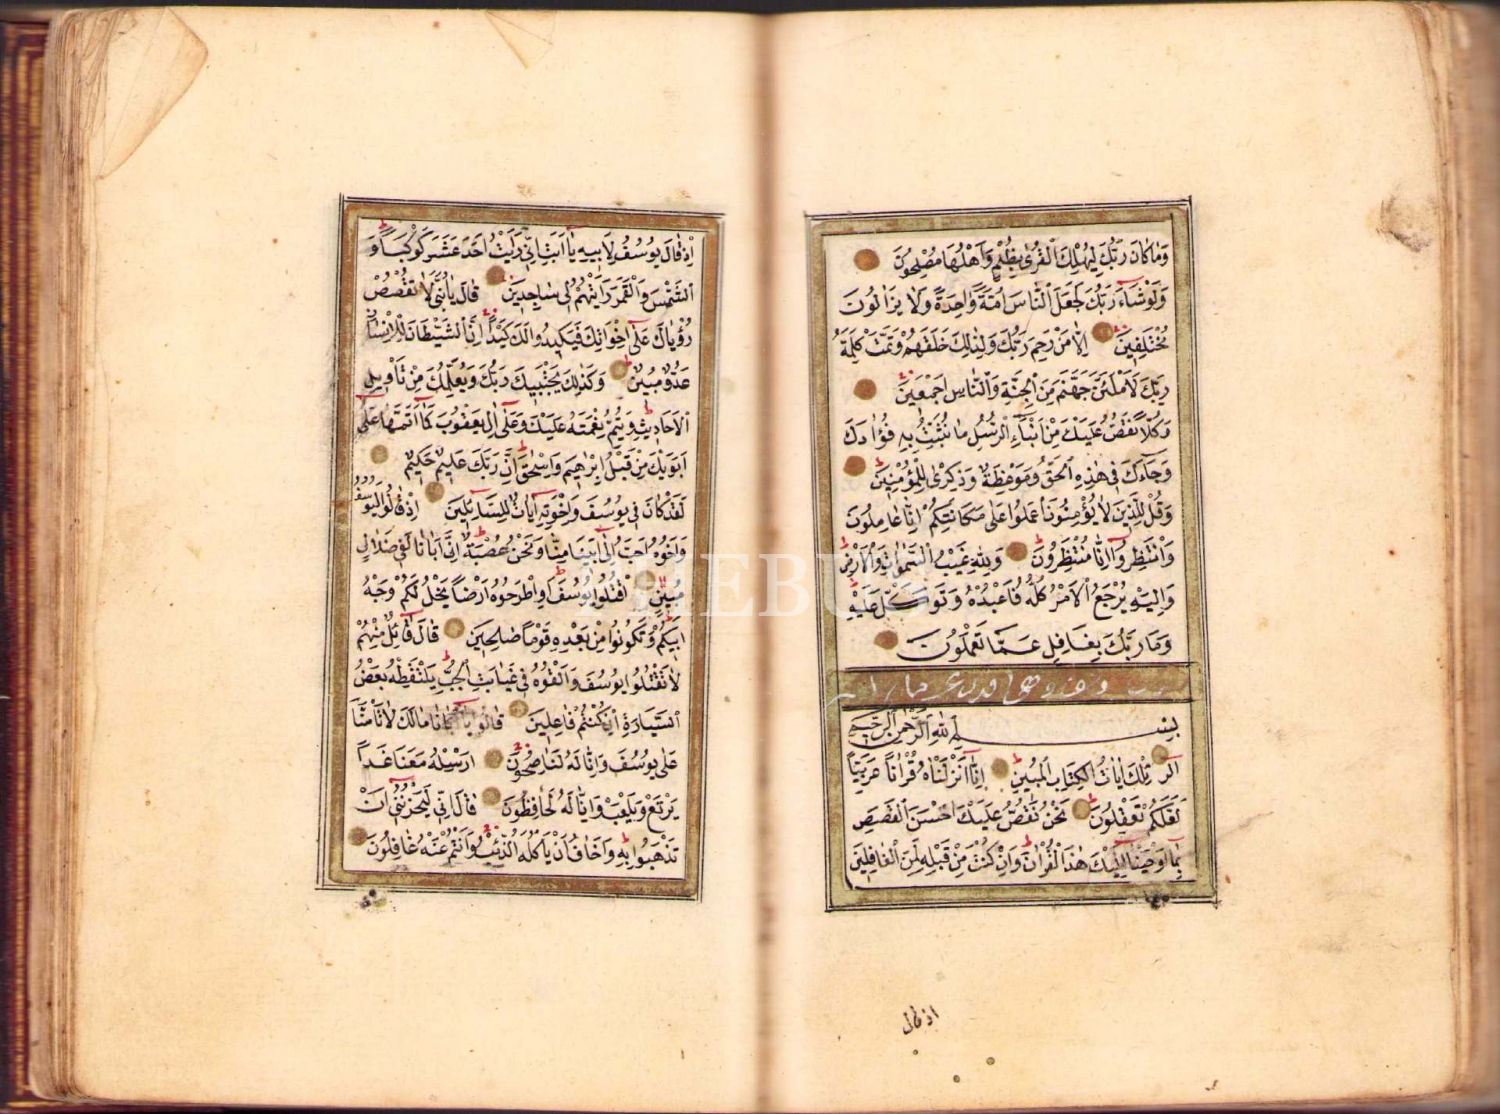 وَمَا كَانَ رَبُّكَ لِيُهْلِكَ الْقُرٰى بِظُلْمٍ وَاَهْلُهَا مُصْلِحُونَ
وَلَوْ شَآءَ رَبُّكَ لَجَعَلَ النَّاسَ اُمَّةً وَاحِدَةً وَلَا يَزَالُونَ
مُخْتَلِفِينَ اِلَّا مَنْ رَحِمَ رَبُّكَ وَلِذٰلِكَ خَلَقَهُمْ وَتَمَّتْ كَلِمَةُ
رَبِّكَ لَاَمْلَئَنَّ جَهَنَّمَ مِنَ الْجِنَّةِ وَالنَّاسِ اَجْمَعِينَ
وَكُلًّا نَقُصُّ عَلَيْكَ مِنْ اَنْبَآءِ الرُّسُلِ مَا نُثَبِّتُ بِهِ فُؤَادَكَ
وَجَآءَكَ فِى هٰذِهِ الْحَقُّ وَمَوْعِظَةٌ وَذِكْرٰى لِلْمُؤْمِنِينَ
وَقُلْ لِلَّذِينَ لَا يُؤْمِنُونَ اعْمَلُوا عَلٰى مَكَانَتِكُمْ اِنَّا عَامِلُونَ
وَانْتَظِرُوا اِنَّا مُنْتَظِرُونَ وَلِلّٰهِ غَيْبُ السَّمٰوَاتِ وَالْاَرْضِ
وَاِلَيْهِ يُرْجَعُ الْاَمْرُ كُلُّهُ فَاعْبُدْهُ وَتَوَكَّلْ عَلَيْهِ
وَمَا رَبُّكَ بِغَافِلٍ عَمَّا تَعْمَلُونَ
بِسْمِ اللّٰهِ الرَّحْمٰنِ الرَّحِيمِ
الٓرٰ تِلْكَ اٰيَاتُ الْكِتَابِ الْمُبِينِ اِنَّا اَنْزَلْنَاهُ قُرْاٰنًا عَرَبِيًّا
لَعَلَّكُمْ تَعْقِلُونَ نَحْنُ نَقُصُّ عَلَيْكَ اَحْسَنَ الْقَصَصِ
بِمَا اَوْحَيْنَا اِلَيْكَ هٰذَا الْقُرْاٰنَ وَاِنْ كُنْتَ مِنْ قَبْلِهِ لَمِنَ الْغَافِلِينَ
اذ قال
اِذْ قَالَ يُوسُفُ لِاَبِيهِ يَا اَبَتِ اِنِّى رَاَيْتُ اَحَدَ عَشَرَ كَوْكَبًا وَ
الشَّمْسَ وَالْقَمَرَ رَاَيْتُهُمْ لِى سَاجِدِينَ قَالَ يَا بُنَىَّ لَا تَقْصُصْ
رُؤْيَاكَ عَلٰى اِخْوَتِكَ فَيَكِيدُوا لَكَ كَيْدًا اِنَّ الشَّيْطَانَ لِلْاِنْسَانِ
عَدُوٌّ مُبِينٌ وَكَذٰلِكَ يَجْتَبِيكَ رَبُّكَ وَيُعَلِّمُكَ مِنْ تَأْوِيلِ
الْاَحَادِيثِ وَيُتِمُّ نِعْمَتَهُ عَلَيْكَ وَعَلٰى اٰلِ يَعْقُوبَ كَمَا اَتَمَّهَا عَلٰى
اَبَوَيْكَ مِنْ قَبْلُ اِبْرٰهِيمَ وَاِسْحٰقَ اِنَّ رَبَّكَ عَلِيمٌ حَكِيمٌ
لَقَدْ كَانَ فِى يُوسُفَ وَاِخْوَتِهِ اٰيَاتٌ لِلسَّآئِلِينَ اِذْ قَالُوا لَيُوسُفُ
وَاَخُوهُ اَحَبُّ اِلٰى اَبِينَا مِنَّا وَنَحْنُ عُصْبَةٌ اِنَّ اَبَانَا لَفِى ضَلَالٍ
مُبِينٍ اُقْتُلُوا يُوسُفَ اَوِ اطْرَحُوهُ اَرْضًا يَخْلُ لَكُمْ وَجْهُ
اَبِيكُمْ وَتَكُونُوا مِنْ بَعْدِهِ قَوْمًا صَالِحِينَ قَالَ قَآئِلٌ مِنْهُمْ
لَا تَقْتُلُوا يُوسُفَ وَاَلْقُوهُ فِى غَيَابَتِ الْجُبِّ يَلْتَقِطْهُ بَعْضُ
السَّيَّارَةِ اِنْ كُنْتُمْ فَاعِلِينَ قَالُوا يَا اَبَانَا مَا لَكَ لَا تَأْمَنَّا
عَلٰى يُوسُفَ وَاِنَّا لَهُ لَنَاصِحُونَ اَرْسِلْهُ مَعَنَا غَدًا
يَرْتَعْ وَيَلْعَبْ وَاِنَّا لَهُ لَحَافِظُونَ قَالَ اِنِّى لَيَحْزُنُنِى اَنْ
تَذْهَبُوا بِهِ وَاَخَافُ اَنْ يَأْكُلَهُ الذِّئْبُ وَاَنْتُمْ عَنْهُ غَافِلُونَ